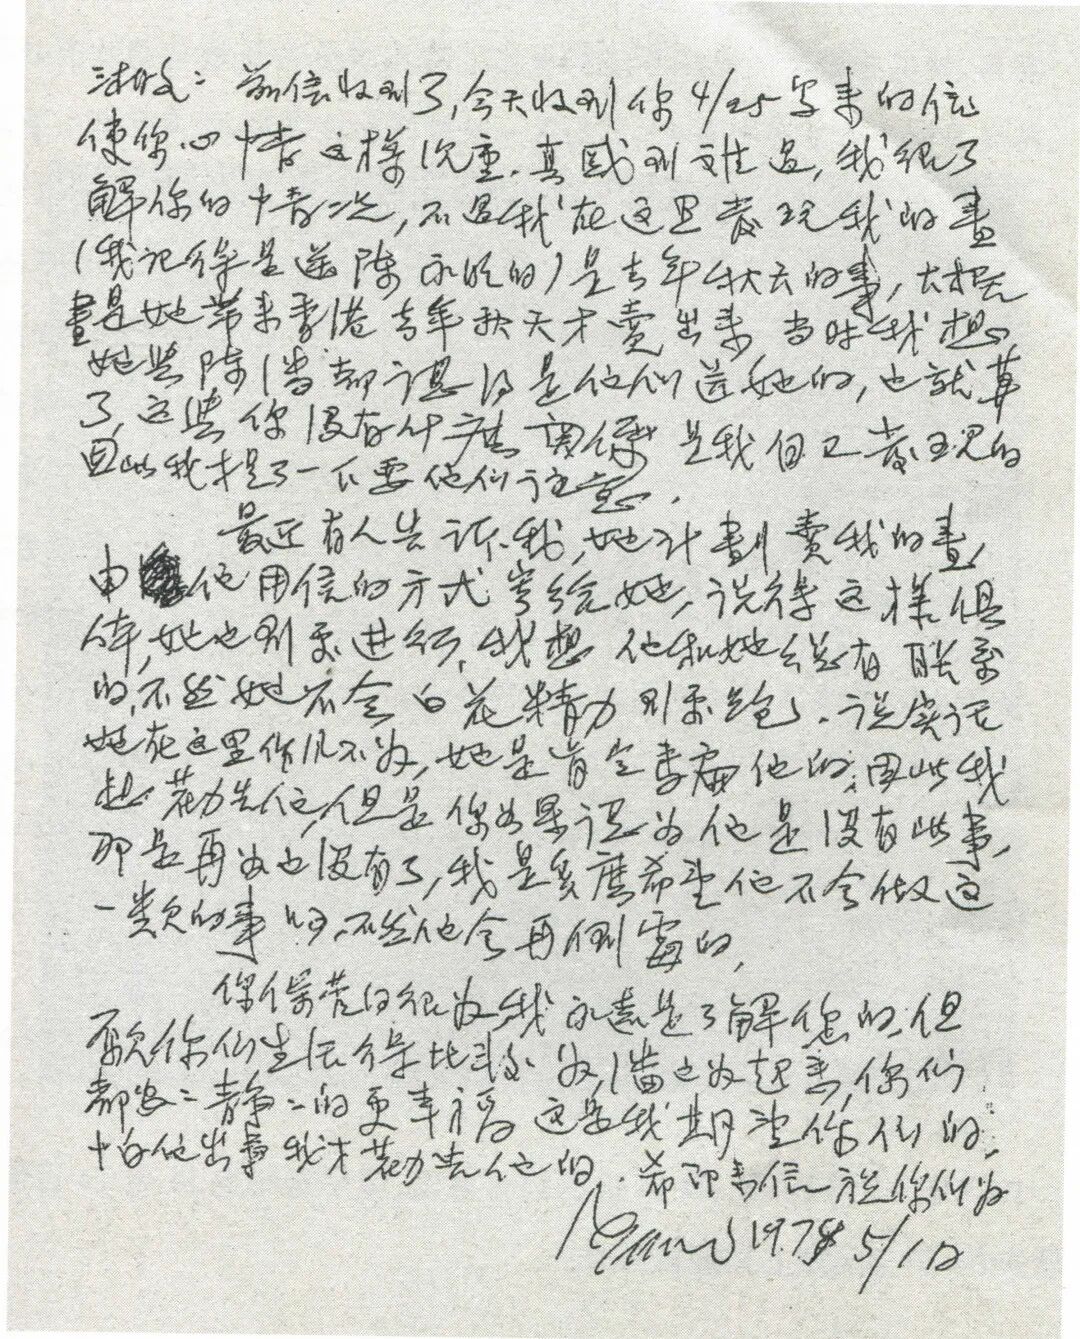 淑文：前信收到了，今天收到你4/25写来的信
使你心情这样沉重，真感到难过，我很了
解你的情况，不过我在这里发现我的畫
（我记得是送陈 的）是去年秋天的事，大概
畫是她带来香港去年秋天才賣出来 当时我想
她与陈、潘都认识是他们送她的，也就算
了，这些你没有什么関係 是我自己发现的
因此我才提了一下要他们注意．
最近有人告诉我，她计劃賣我的畫，
由 他用信的方式寄给她，说得这样俱
体，她也到处进行，我想 他和她总有联系
的，不然她不会白花精力到处跑，说实话
她在这里作风不好，她是肯会 他的，因此我
想 劝告他，但是你如果认为他是没有此事，
那是再好也没有了，我是多麽希望他不会做这
一类的事 ，不然他会再倒霉的，
你保管的很好，我永远是了解您的，但
願你们生活得比 好，潘也好起来，你们
都安二静二的更幸福 这是我期望你们的，
怕他出事我才劝告他的．希即来信 祝你们好
1978 5/12